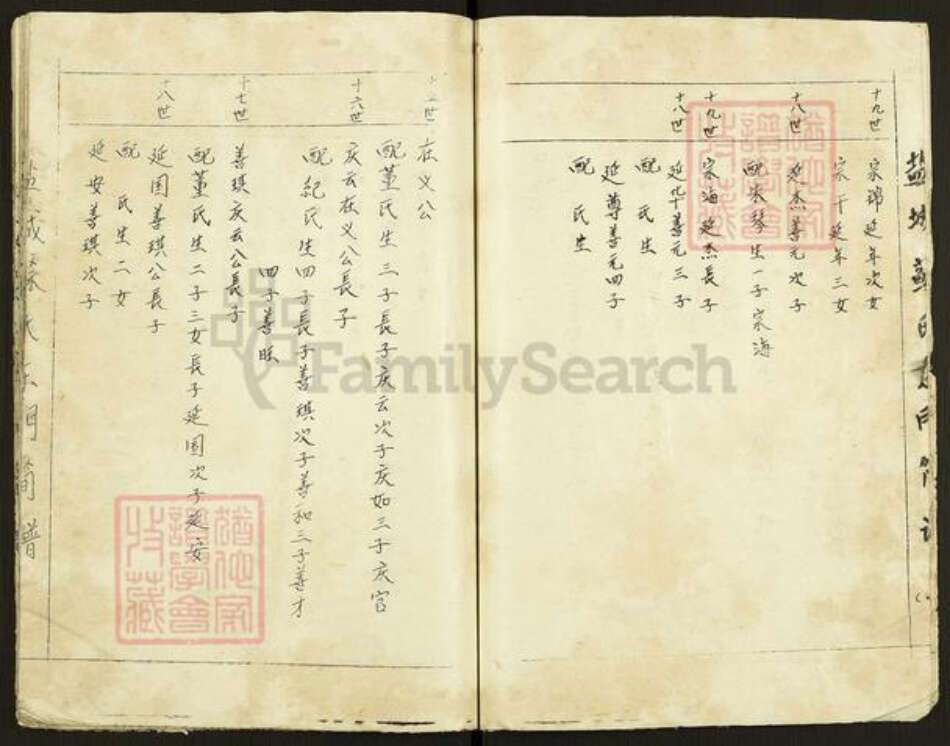 十九世
宗瑞延年次女
宗干延年三女
十八世
延杰善元次子
配朱琴生一子宗海
十九世
宗海延杰長子
十八世
延华善元三子
配 氏生
延尊善元四子
配 氏生
在义公
配董氏生三子長子庆云次子庆如三子庆官
十六世
庆云在义公長子
配纪氏生四子長子善琪次子善和三子善才
四子善旺
十七世
善琪庆云公長子
配董氏生二子三女長子延国次子延安
十八世
延国善琪公長子
配 氏生二女
延安善琪次子
FamilySearch